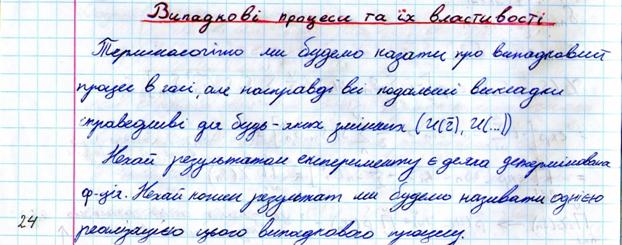 Випадкові процеси та їх властивості
Термінологічно ми будемо казати про випадковий
процес в часі, але насправді всі подальші викладки
справедливі для будь-яких змінних (U(z̄), U(...))
Нехай результатом експерименту є деяка детермінована
ф-ція. Нехай кожен результат ми будемо називати однією
реалізацією цього випадкового процесу.
24